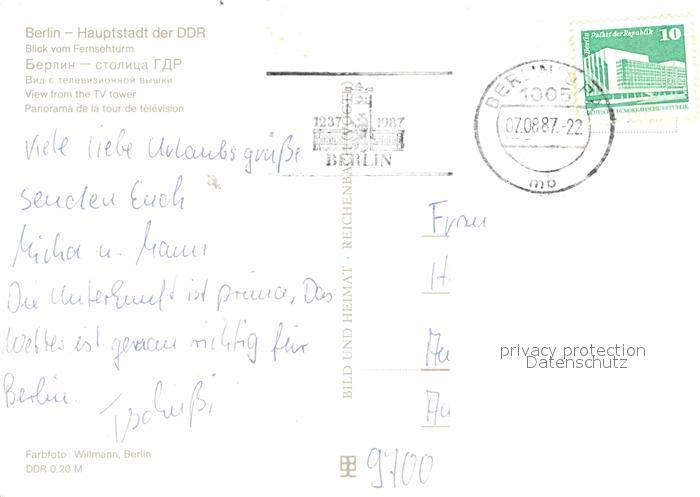 Berlin – Hauptstadt der DDR
Blick vom Fernsehturm
Берлин – столица ГДР
Вид с телевизионной вышки
View from the TV tower
Panorama de la tour de télévision
Viele liebe Urlaubsgrüße
senden Euch
Micha u.
Die Unterkunft ist prima, Das
Wetter ist genau richtig für
Berlin.
Tschüßi
Farbfoto: Willmann, Berlin
DDR 0,20 M
BILD UND HEIMAT · REICHENBACH (VOGTL)
1237 1987
BERLIN
BERLIN
1085
07.08.87.-22
mb
Berlin Palast der Republik 10
DEUTSCHE DEMOKRATISCHE REPUBLIK
Frau
H
Au
Au
9700
privacy protection
Datenschutz